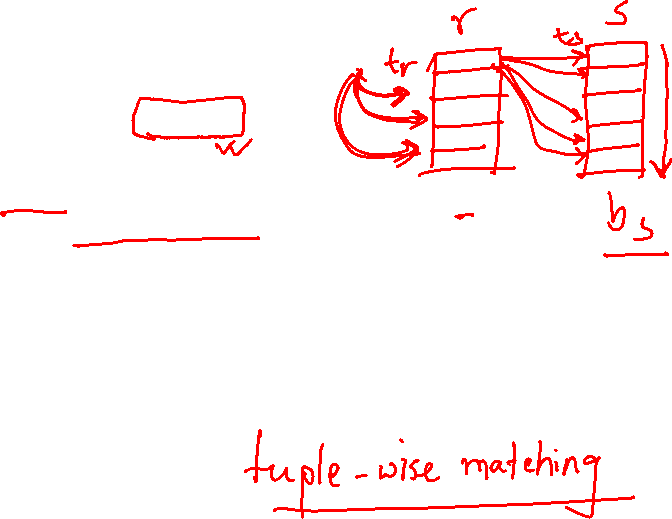 r s
tr ts
bs
tuple-wise matching